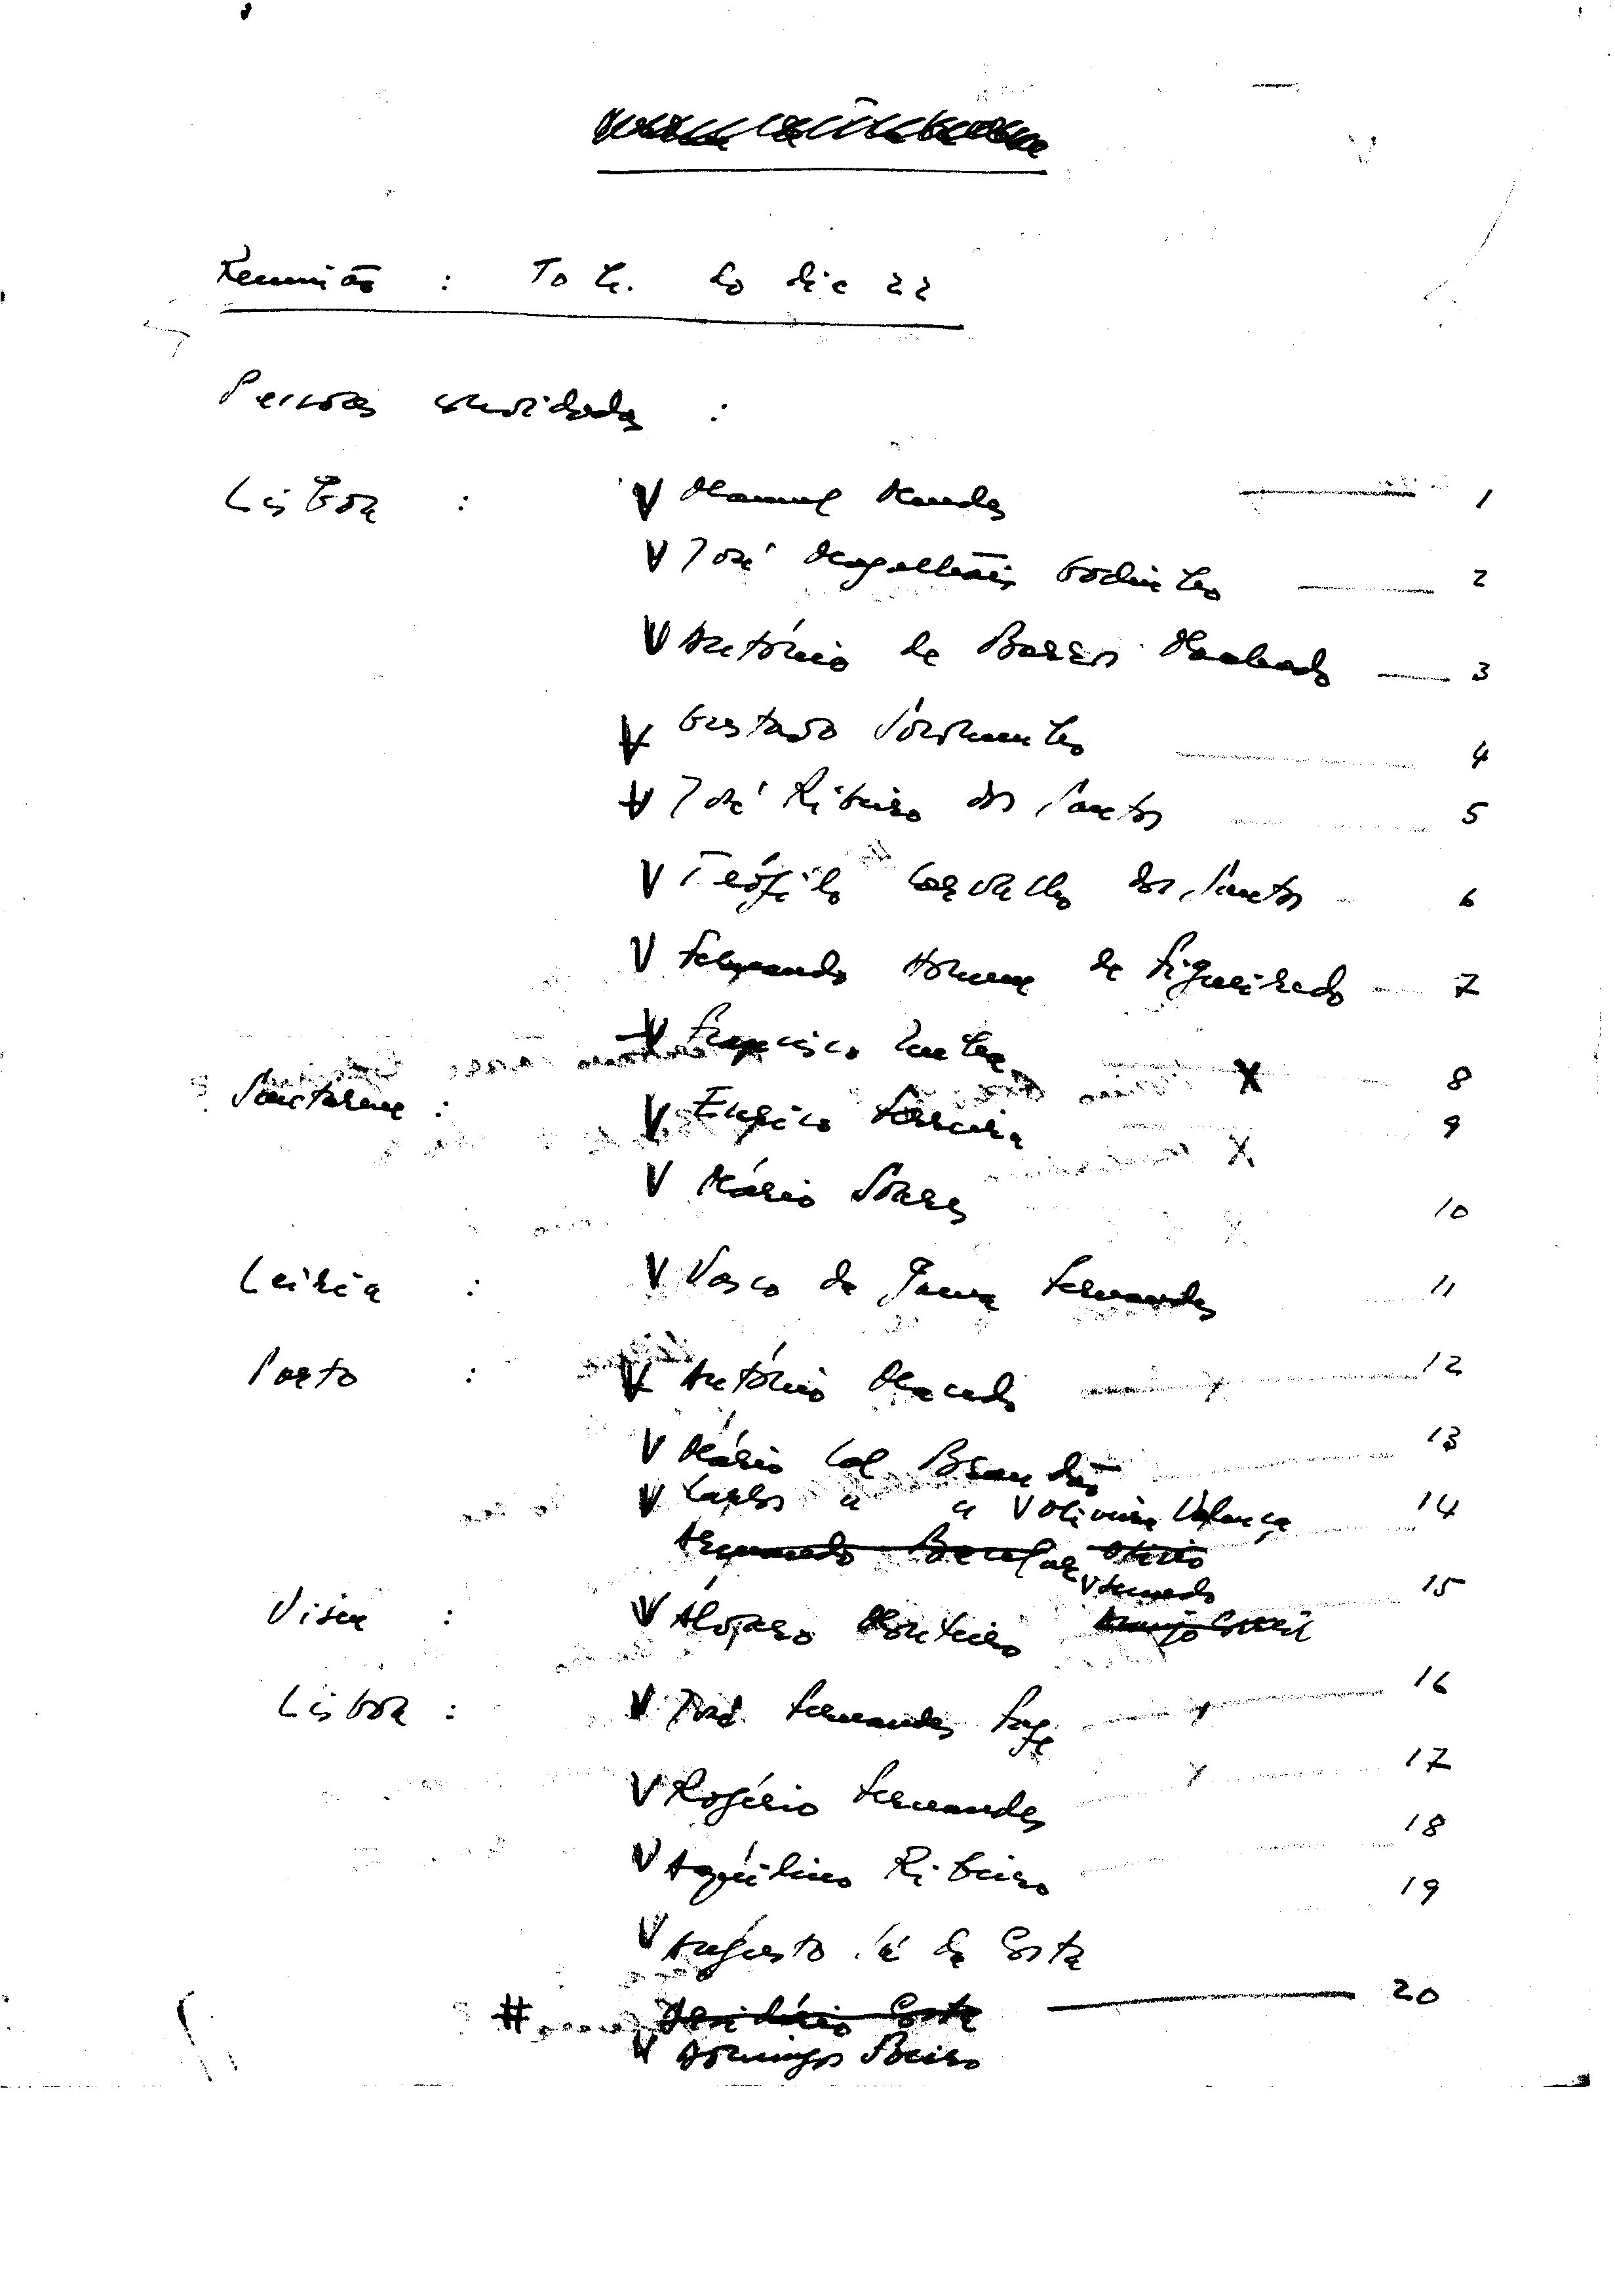 Reunião : 10 h. do dia 22
Pessoas convidadas :
Lisboa : V Manuel Mendes 1
V José Magalhães Godinho 2
V António de Barros Machado 3
V Gustavo Soromenho 4
V José Ribeiro dos Santos 5
V Teófilo Carvalho dos Santos 6
V Fernando Homem de Figueiredo 7
V Francisco X 8
Santarem : V Eugénio Ferreira 9
X
V Mário Soares 10
Leiria : V Vasco da Gama Fernandes 11
Porto : V António Macedo 12
V Mário Cal Brandão 13
V Carlos " " V Oliveira Valença 14
Armando Bacelar
V 15
Viseu : V Álvaro Monteiro Araujo Correia
Lisboa : V José Fernandes Fafe 16
V Rogério Fernandes 17
V Aquilino Ribeiro 18
19
V Augusto Sá da Costa
# Costa 20
V Domingos